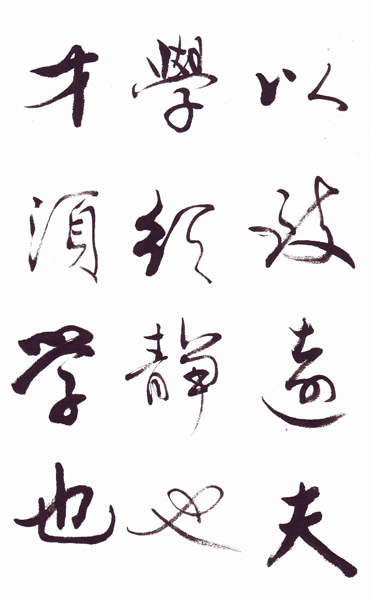 以致遠夫
學須静也
才須学也